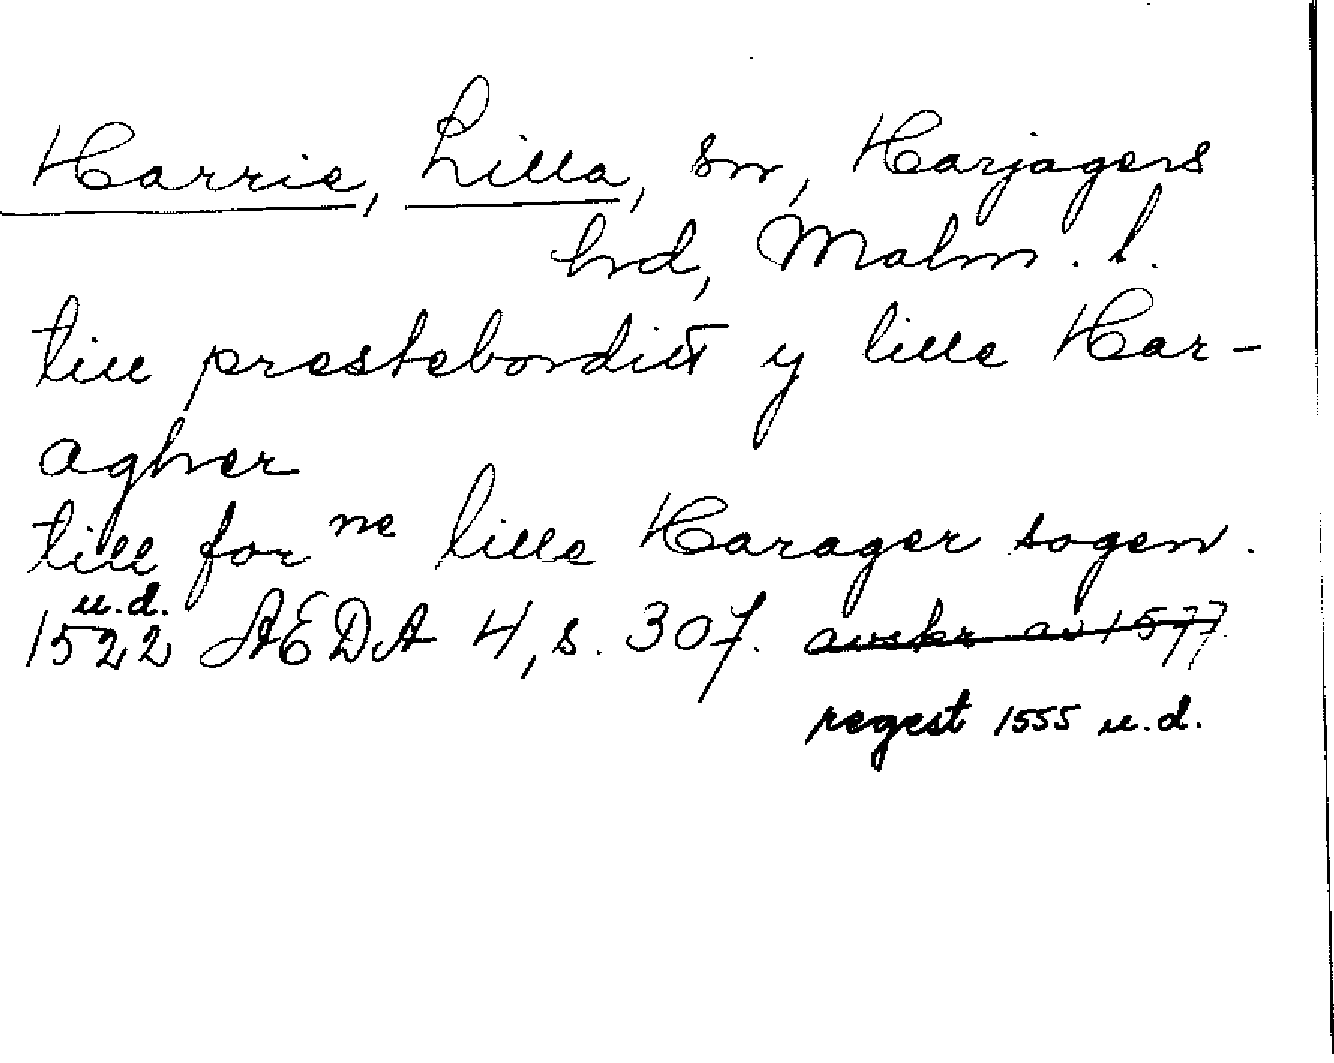 Harrie, Lilla, sn, Harjagers
hrd, Malm. l.
till prestebordit y lille Har-
agher
till for ne lille Harager sogen.
u.d.
1522 AEDA 4, s. 307. avskr av 1577.
regest 1555 u.d.